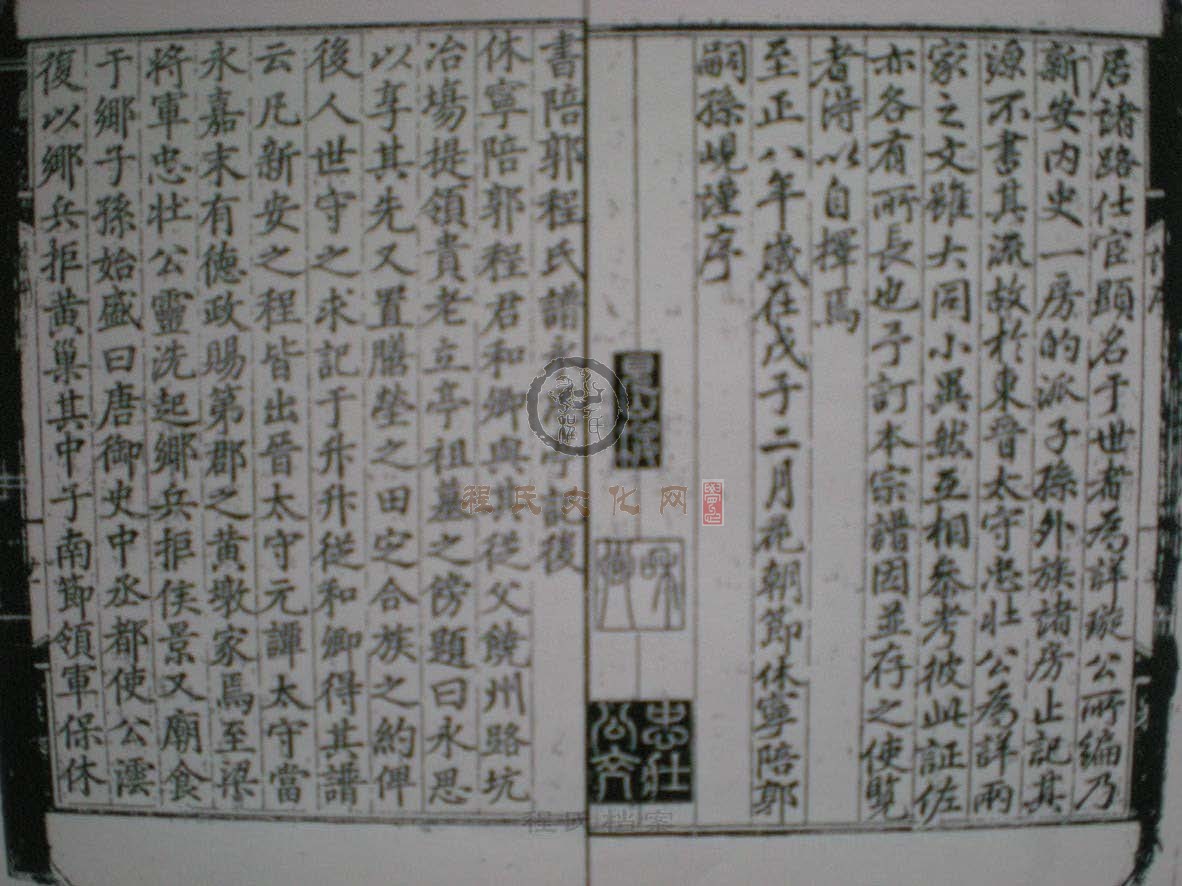 居諸路仕官顯名于世者為詳璇公所編乃
新安内史一房的派子孫外族諸房止記其
源不書其流故於東晉太守忠壯公為詳兩
家之文雖大同小異然互相參考彼此証佐
亦各有所長也予訂本宗譜因並存之使覽
者得以自擇焉
至正八年歲在戊子二月花朝節休寧陪郭
嗣孫峴謹序
忠壯
書陪郭程氏譜永思亭記後
休寧陪郭程君和卿與其從父饒州路坑
冶場提領貴老立亭祖墓之傍題曰永思
以享其先又置膳塋之田定合族之約俾
後人世守之求記于升升從和卿得其譜
云凡新安之程皆出晉太守元譚太守當
永嘉末有德政賜第郡之黄墩家焉至梁
將軍忠壯公靈洗起鄉兵拒侯景又廟食
于鄉子孫始盛曰唐御史中丞都使公澐
復以鄉兵拒黄巢其中子南節領軍保休
程氏文化网
程氏档案